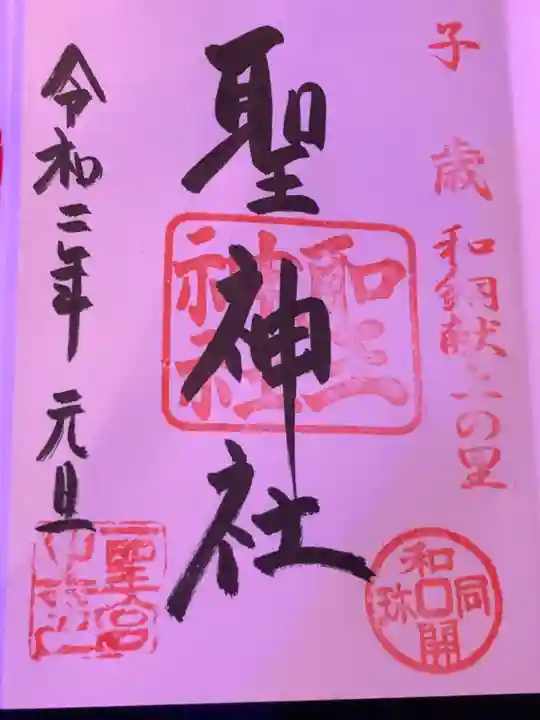 子歳
和銅献上の里
聖神社
聖神社
令和二年 元旦
和同開珎